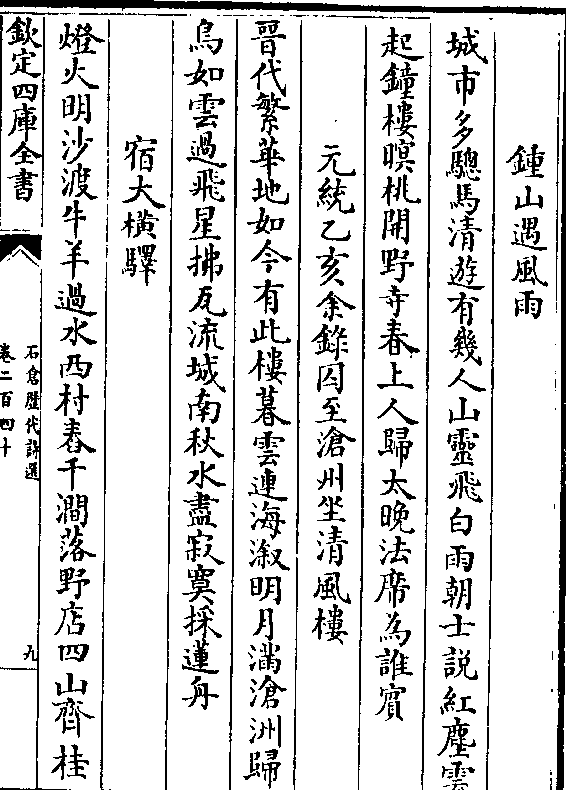 鍾山遇風雨
城市多驄馬清遊有幾人山靈飛白雨朝士説紅塵雲
起鐘樓暝桃開野寺春上人歸太晚法席為誰賓
元統乙亥余錄囚至滄州坐清風樓
晋代繁華地如今有此樓暮雲連海溆明月滿滄洲歸
鳥如雲過飛星拂瓦流城南秋水盡寂寞採蓮舟
宿大横驛
燈火明沙渡牛羊過水西村舂千澗落野店四山齊桂
欽定四庫全書
石倉歷代詩選
卷二百四十
九